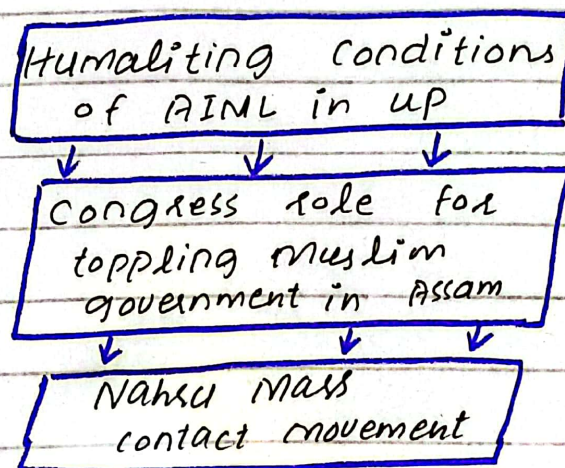 Humaliting Conditions
of AIML in UP
Congress role for
toppling Muslim
government in Assam
Nahru Mass
contact movement